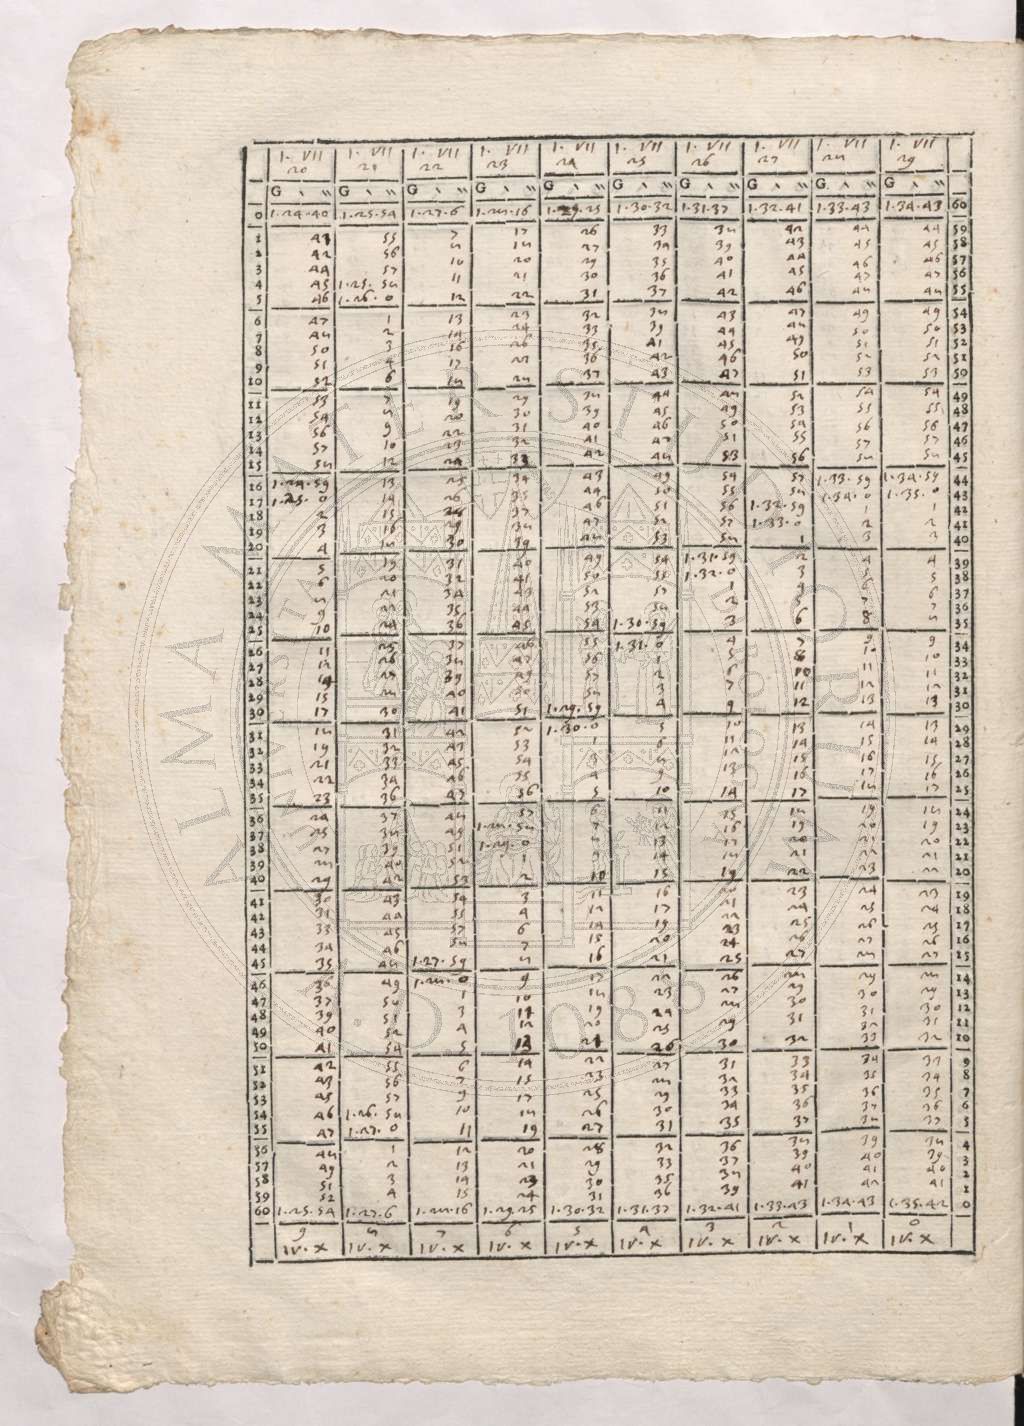 1. VII 1. VII 1. VII 1. VII 1. VII 1. VII 1. VII 1. VII 1. VII 1. VII
20 21 22 23 24 25 26 27 28 29
G ‵ ‶ G ‵ ‶ G ‵ ‶ G ‵ ‶ G ‵ ‶ G ‵ ‶ G ‵ ‶ G ‵ ‶ G ‵ ‶ G ‵ ‶
0 1.24.40 1.25.54 1.27.6 1.28.16 1.29.25 1.30.32 1.31.37 1.32.41 1.33.43 1.34.43 60
1 55 7 17 26 33 38 42 44 44 59
2 42 56 8 18 27 34 39 43 45 45 58
3 44 57 10 20 29 35 40 44 46 46 57
4 45 1.25.58 11 21 30 36 41 45 47 47 56
5 46 1.26.0 12 22 31 37 42 46 48 48 55
6 47 1 13 23 32 38 43 47 49 49 54
7 48 2 14 24 33 39 44 48 50 50 53
8 50 3 16 26 35 41 45 49 51 51 52
9 51 4 17 27 36 42 46 50 52 52 51
10 52 6 18 28 37 43 47 51 53 53 50
11 53 7 19 29 38 44 48 52 54 54 49
12 54 8 20 30 39 45 49 53 55 55 48
13 56 9 22 31 40 46 50 54 56 56 47
14 57 10 23 32 41 47 51 55 57 57 46
15 58 12 24 33 42 48 53 56 58 58 45
16 1.24.59 13 25 34 43 49 54 57 1.33.59 1.34.59 44
17 1.25.0 14 26 35 44 50 55 58 1.34.0 1.35.0 43
18 2 15 28 37 46 51 56 1.32.59 1 1 42
19 3 16 29 38 47 52 57 1.33.0 2 2 41
20 4 18 30 39 48 53 58 1 3 3 40
21 5 19 31 40 49 54 1.31.59 2 4 4 39
22 6 20 32 41 50 55 1.32.0 3 5 5 38
23 8 21 34 43 52 57 1 4 6 6 37
24 9 22 35 44 53 58 2 5 7 7 36
25 10 24 36 45 54 1.30.59 3 6 8 8 35
26 11 25 37 46 55 1.31.0 4 7 9 9 34
27 12 26 38 47 56 1 5 8 10 10 33
28 14 27 39 49 57 2 6 10 11 11 32
29 15 28 40 50 58 3 7 11 12 12 31
30 17 30 41 51 1.29.59 4 9 12 13 13 30
31 18 31 42 52 1.30.0 5 10 13 14 13 29
32 19 32 43 53 1 6 11 14 15 14 28
33 21 33 45 54 3 8 12 15 16 15 27
34 22 34 46 55 4 9 13 16 17 16 26
35 23 36 47 56 5 10 14 17 18 17 25
36 24 37 48 57 6 11 15 18 19 18 24
37 25 38 49 1.28.58 7 12 16 19 20 19 23
38 27 39 51 1.29.0 8 13 17 20 21 20 22
39 28 40 52 1 9 14 18 21 22 21 21
40 29 42 53 2 10 15 19 22 23 22 20
41 30 43 54 3 11 16 20 23 24 23 19
42 31 44 55 4 12 17 21 24 25 24 18
43 33 45 57 6 14 19 23 25 26 25 17
44 34 46 58 7 15 20 24 26 27 26 16
45 35 48 1.27.59 8 16 21 25 27 28 27 15
46 36 49 1.28.0 9 17 22 26 28 29 28 14
47 37 50 1 10 18 23 27 29 30 29 13
48 39 51 3 11 19 24 28 30 31 30 12
49 40 52 4 12 20 25 29 31 32 31 11
50 41 54 5 13 21 26 30 32 33 32 10
51 42 55 6 14 22 27 31 33 34 33 9
52 43 56 7 15 23 28 32 34 35 34 8
53 45 57 9 17 25 29 33 35 36 35 7
54 46 1.26.58 10 18 26 30 34 36 37 36 6
55 47 1.27.0 11 19 27 31 35 37 38 37 5
56 48 1 12 20 28 32 36 38 39 38 4
57 49 2 13 21 29 33 37 39 40 39 3
58 51 3 14 23 30 35 38 40 41 40 2
59 52 4 15 24 31 36 39 41 42 41 1
60 1.25.54 1.27.6 1.28.16 1.29.25 1.30.32 1.31.37 1.32.41 1.33.43 1.34.43 1.35.42 0
9 8 7 6 5 4 3 2 1 0
IV. X IV. X IV. X IV. X IV. X IV. X IV. X IV. X IV. X IV. X
ALMA MATER STUDIORUM
A.D. 1088